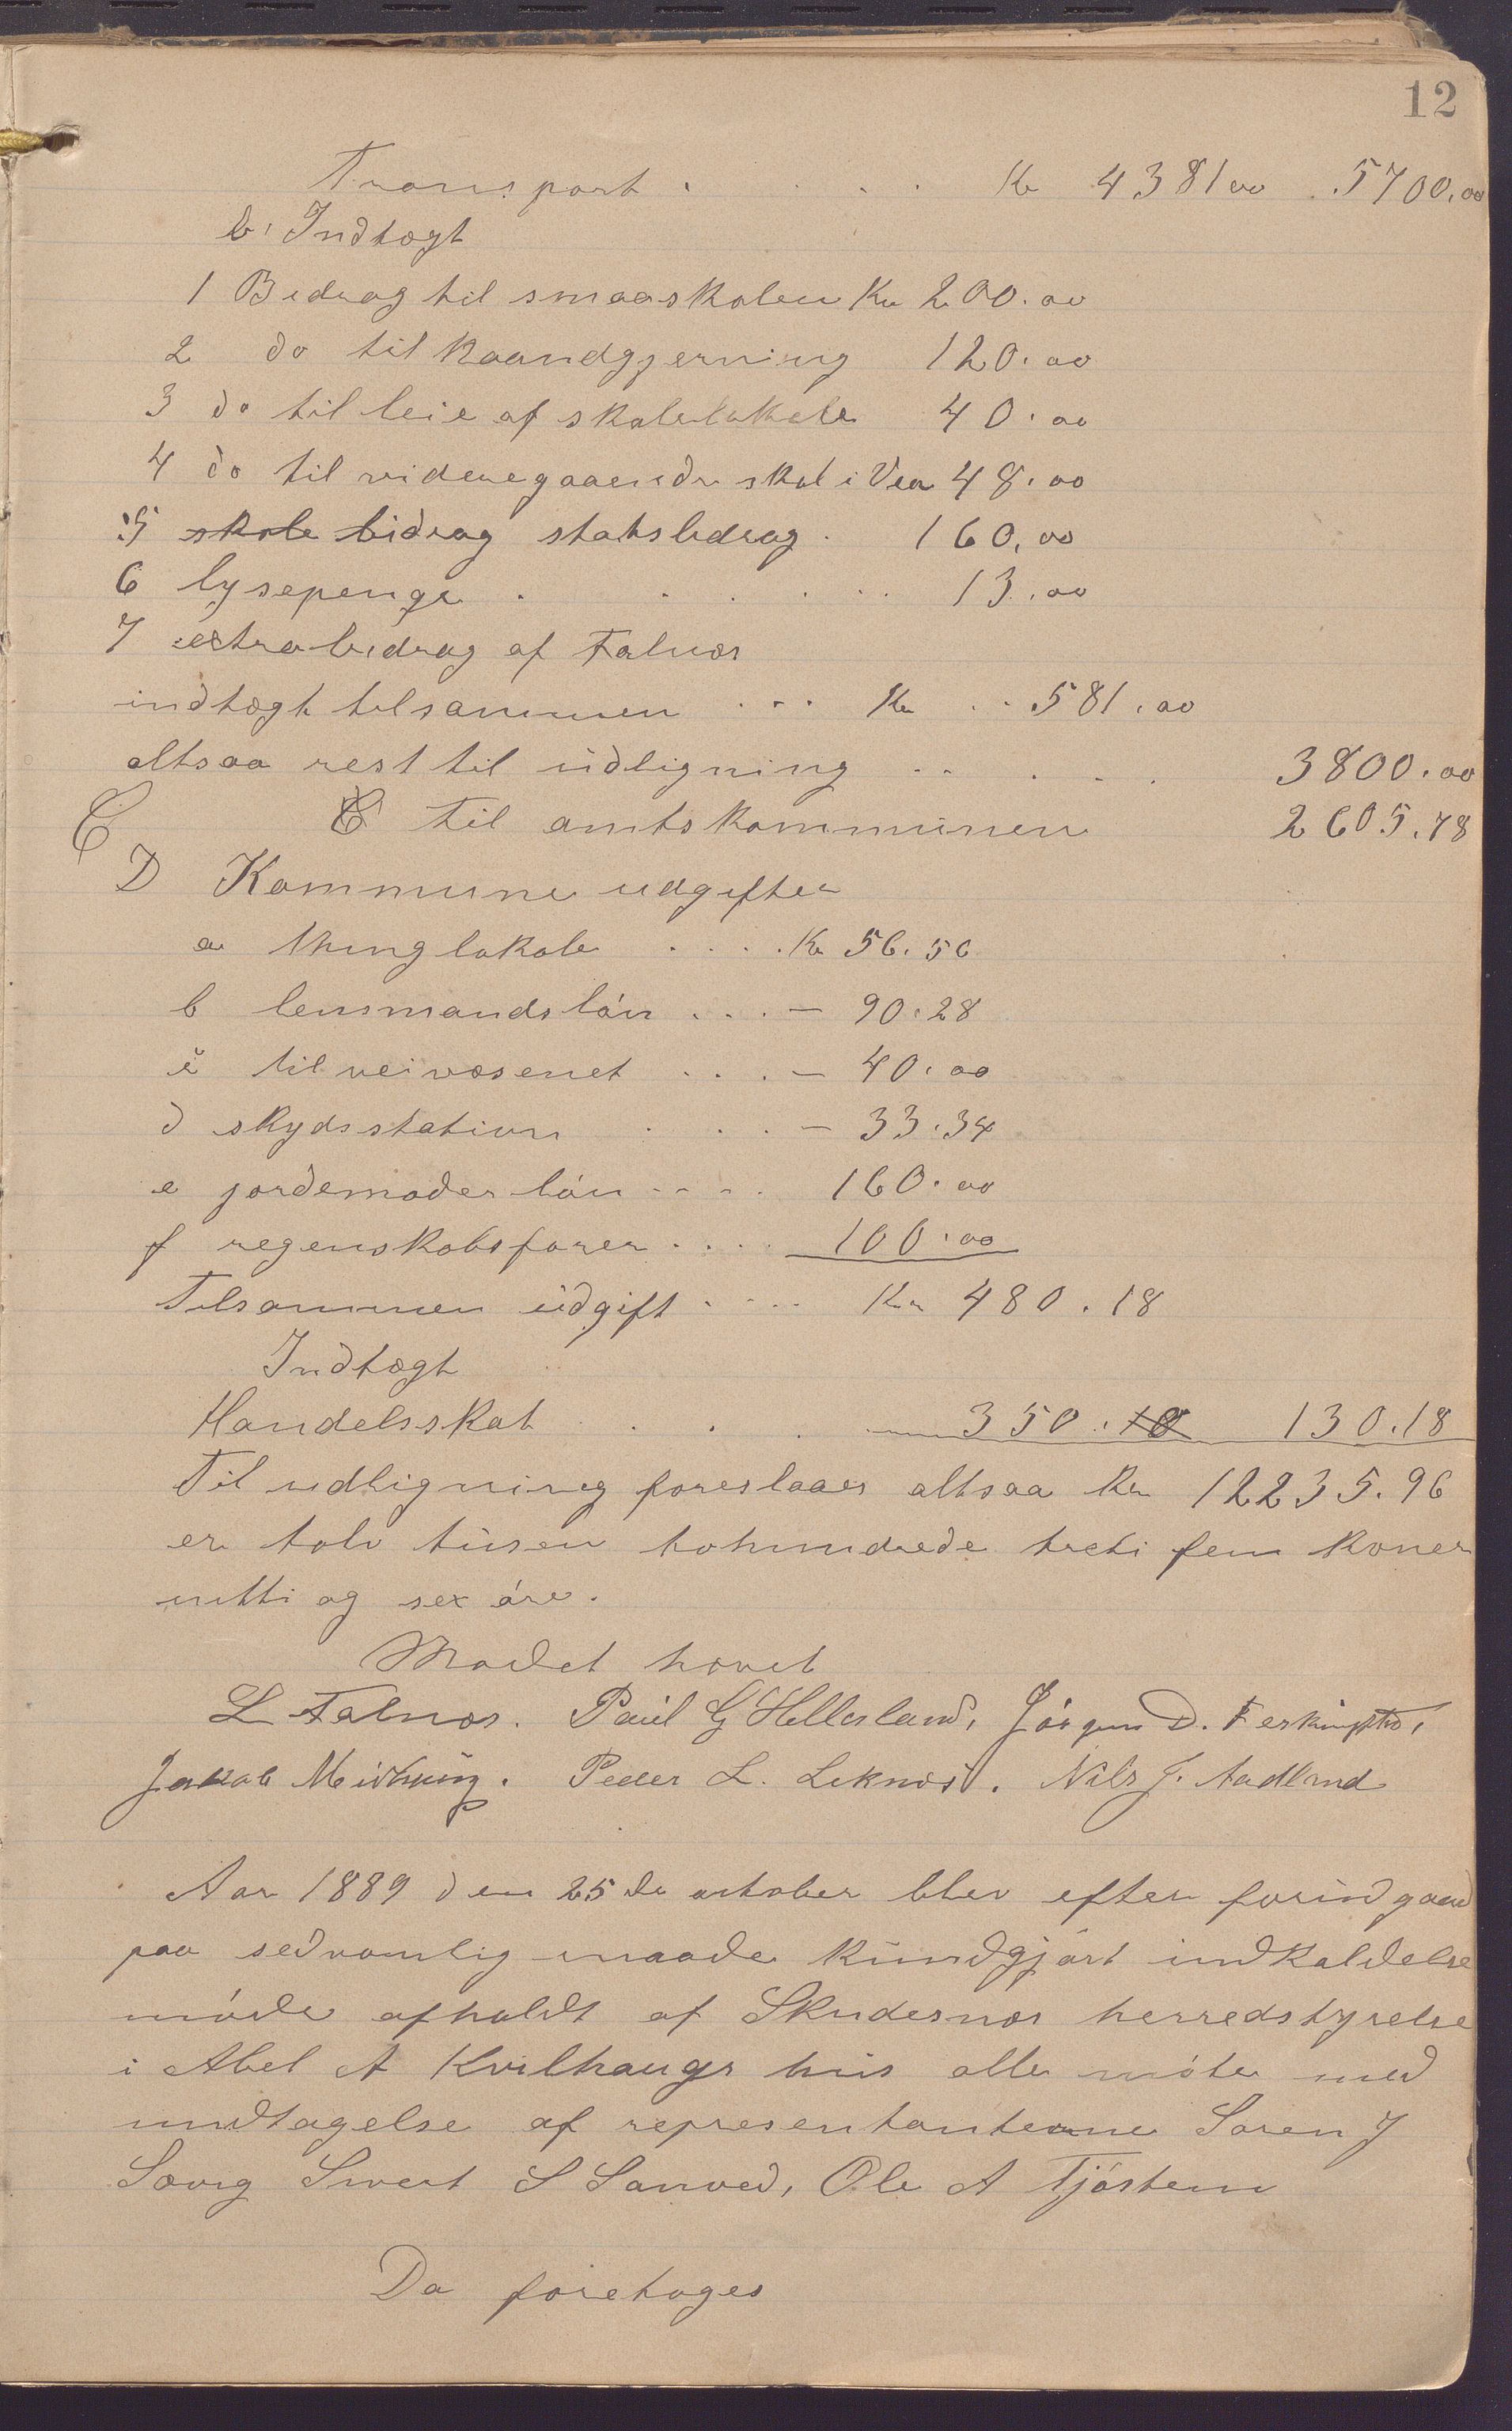 12
Transport . . . . Kr 4381.00 5700.00
b. Indtægt
1 Bedrag til smaaskolen Kr 200.00
2 do til haandgjerning 120.00
3 do til leie af skolelokale 40.00
4 do til videregaaende skol i Vea 48.00
5 skole bidrag statsbedrag . 160.00
6 lysepenge . . . . . . 13.00
7 extrabedrag af Falnæs
indtægt tilsammen . . . Kr . . 581.00
altsaa rest til udligning . . . . . 3800.00
C C til amtskommunen 2605.78
D Kommune udgifter
a thinglokale . . . . Kr 56.56
b lensmandsløn . . . — 90.28
c til veivæsenet . . . — 40.00
d skydsstation . . . — 33.34
e jordemoderløn . . . . 160.00
f regenskabsfører . . . . 100.00
Tilsammen udgift . . . . Kr 480.18
Indtægt
Handelsskat . . . 350.10 130.18
Til udligning foreslaaes altsaa Kr 12235.96
er tolv tusen tohundrede treti fem kroner
nitti og sex øre.
Mødet hævet
L Falnæs. Paul G Hellesland, Jørgen D. Ferkingstad,
Jakob Midthning. Peder L. Leknæs. Nils J. Aadland
Aar 1889 den 25de october blev efter forindgaaed
paa sedvanlig maade kundgjørt indkaldelse
møde afholdt af Skudesnæs herredstyrelse
i Abel A Kvilhaugs hus alle møte med
undtagelse af representanterne Søren J
Sævig Sivert S Sanved, Ole A Tjøstem
Da foretoges